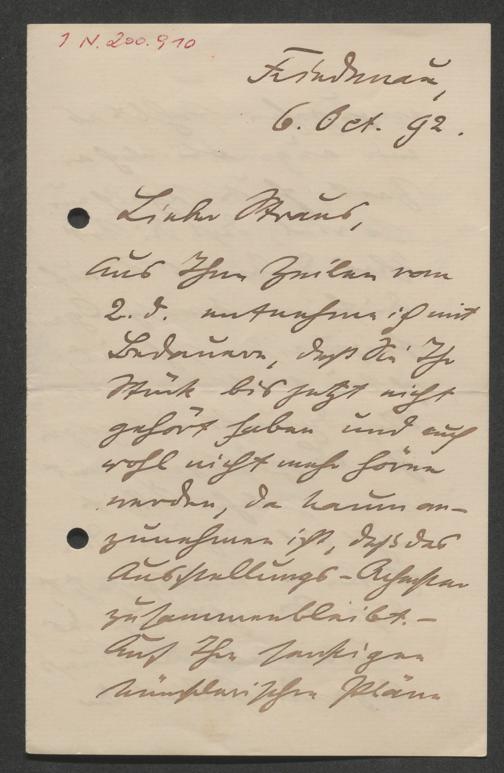 I N. 200.910
Friedenau,
6. Oct. 92.
Lieber Straus,
Aus Ihren Zeilen vom
2. d. entnehme ich mit
Bedauern, daß Sie Ihr
Stück bis jetzt nicht
gehört haben und auch
wohl nicht mehr hören
werden, da kaum an-
zunehmen ist, daß das
Ausstellungs-Orchester
zusammenbleibt. –
Auf Ihre sonstigen
künstlerischen Pläne